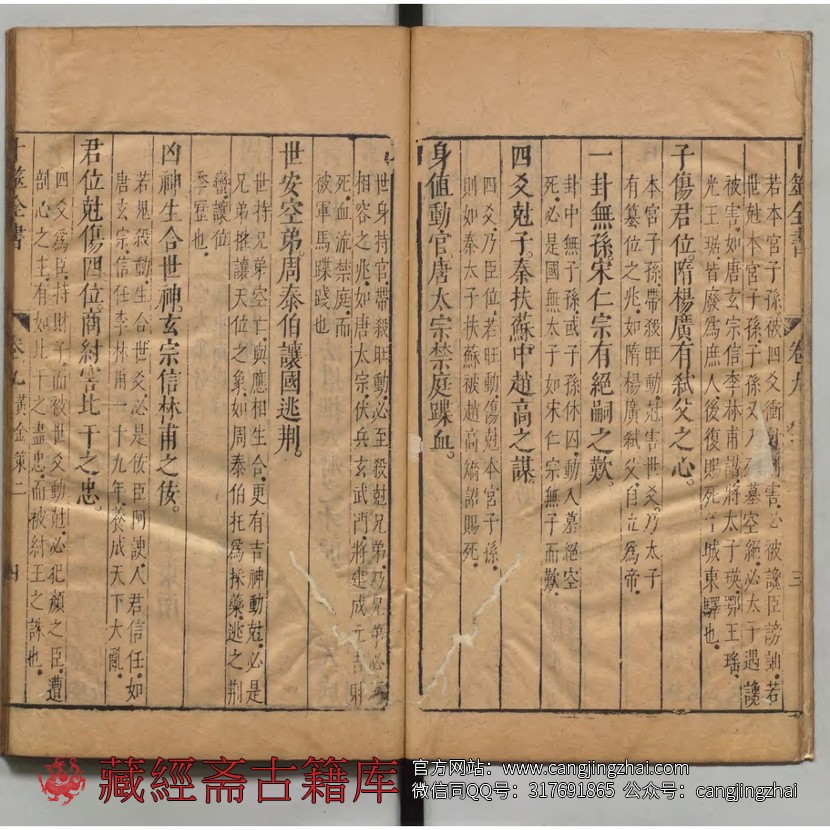 卜筮全書
卷九
三
若本宮子孫被四爻衝尅刑害必被讒臣謗訕若
世尅本宮子孫子孫又入死墓空絕必太子遇讒
被害如唐玄宗信李林甫譖將太子瑛鄂王瑤
光王琚皆廢為庶人後復賜死城東驛也
子傷君位隋楊廣有弒父之心
本宮子孫帶殺旺動尅害世爻乃太子
有篡位之兆如隋楊廣弒父自立爲帝
一卦無孫宋仁宗有絕嗣之歎
卦中無子孫或子孫休囚動入墓絕空
死必是國無太子如宋仁宗無子而歎
四爻尅子秦扶蘇中趙高之謀
四爻乃臣位若旺動傷尅本宮子孫
則如秦太子扶蘇被趙高矯詔賜死
身值動官唐太宗禁庭蹀血
世身持官帶殺旺動必至殺尅兄弟乃兄弟必
相容之兆如唐太宗伏兵玄武門將建成元吉射
死血流禁庭而
被軍馬蹀踐也
世安空弟周泰伯讓國逃荆
世持兄弟空亡與應相生合更有吉神動尅必是
兄弟推讓天位之象如周泰伯托爲採藥逃之荆
蠻讓位
季歷也
凶神生合世神玄宗信林甫之佞
若鬼殺動生合世爻必是佞臣阿諛人君信任如
唐玄宗信任李林甫一十九年養成天下大亂
君位尅傷四位商紂害比干之忠
四爻爲臣持財子而被世爻動尅必犯顏之臣遭
剖心之主有如比干之盡忠而被紂王之誅也
卜筮全書
卷九黃金策二
四
藏經斋古籍库
官方网站：www.cangjingzhai.com
微信同QQ号：317691865 公众号：cangjingzhai